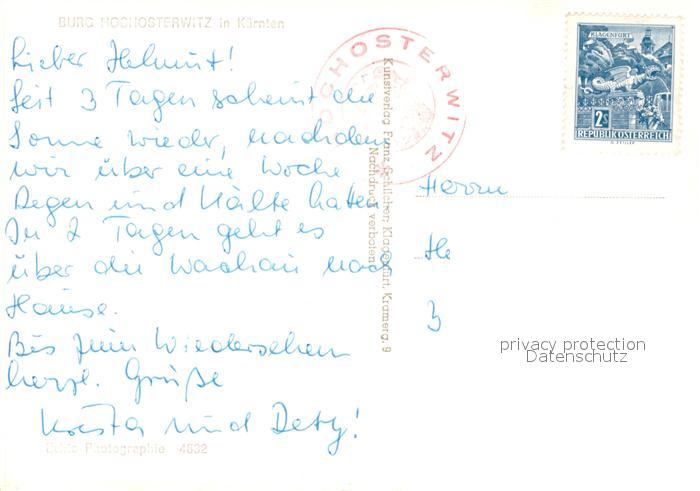 BURG HOCHOSTERWITZ in Kärnten
Lieber Helmut!
Seit 3 Tagen scheint die
Sonne wieder, nachdem
wir über eine Woche
Regen und Kälte hatten
In 2 Tagen geht es
über die Wachau nach
Hause.
Bis zum Wiedersehen
herzl. Grüße
und
Echte Photographie 4632
Kunstverlag Franz Schilcher, Klagenfurt, Kramerg. 9
Nachdruck verboten
HOCHOSTERWITZ
KLAGENFURT
2S
REPUBLIK ÖSTERREICH
Herrn
He
3
privacy protection
Datenschutz